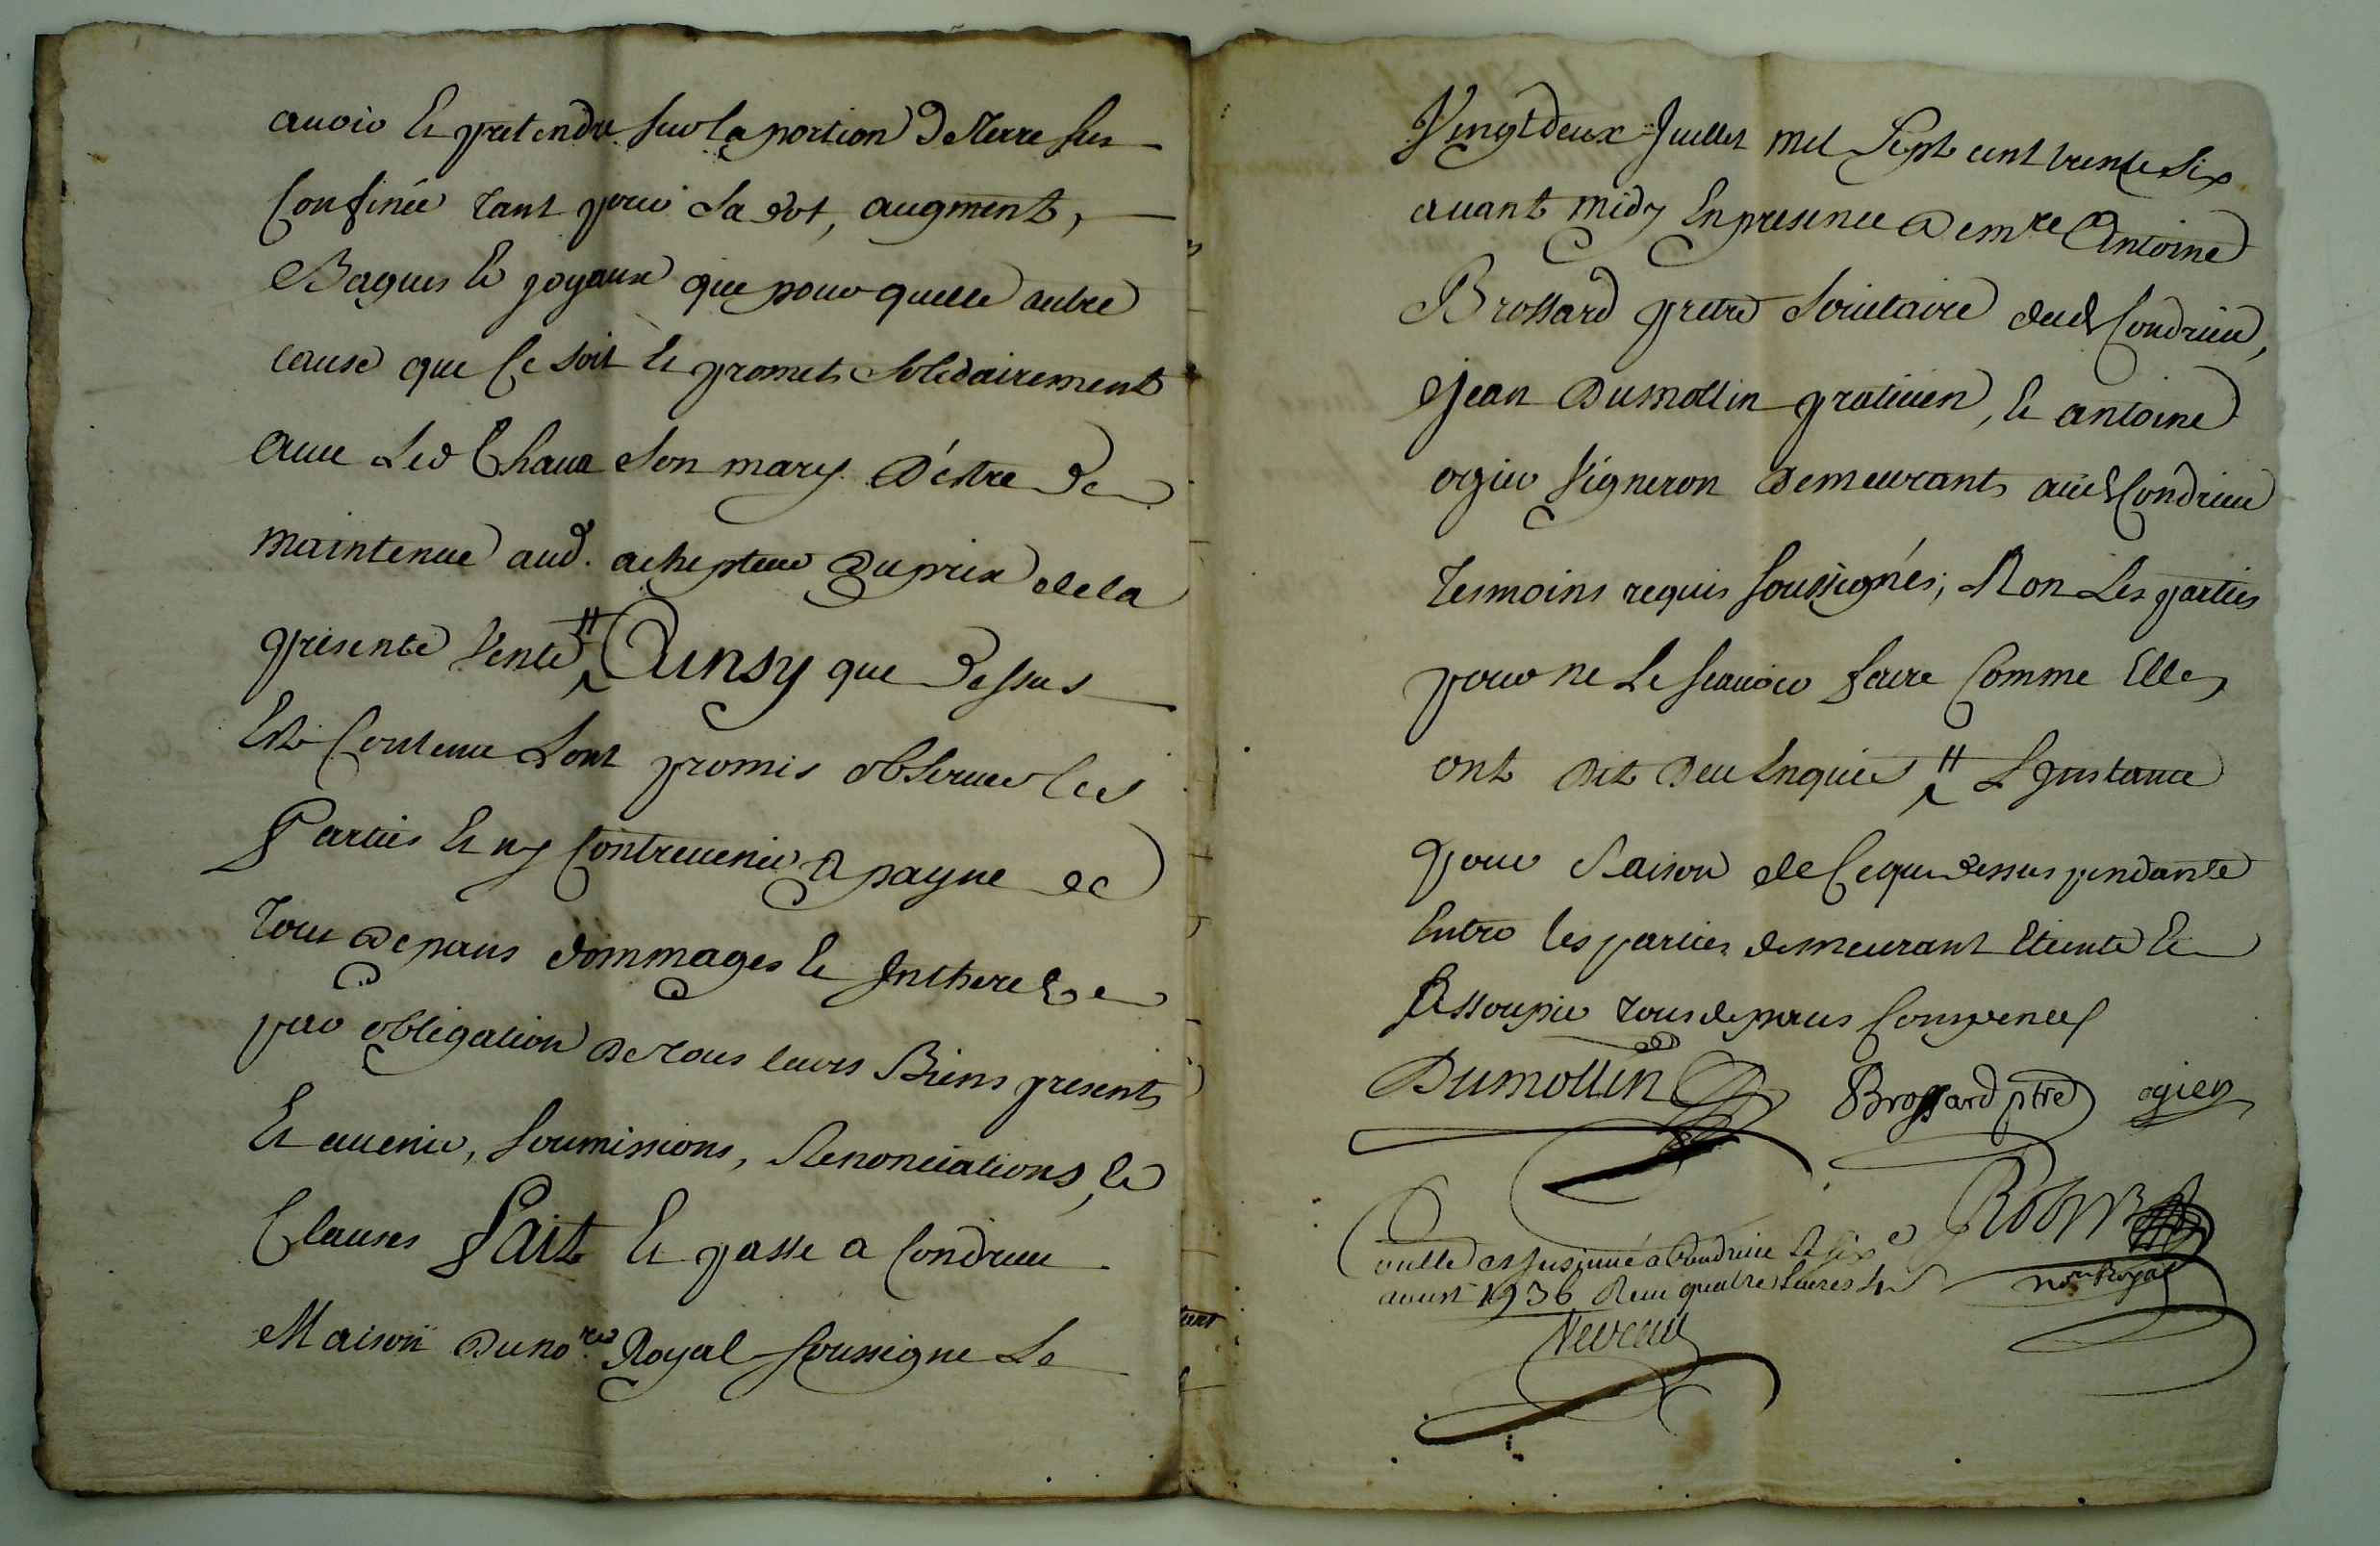 avoir et pretendre sur la portion de terre sus
Confinée tant pour sa dot, augment,
Bagues et joyaux que pour quelle autre
cause que ce soit et promet solidairement
avec led Chaux son mary d'estre de
maintenue aud. achepteur du prix de la
presente Vente Ainsy que dessus
Est Contenu L'ont promis observer les
Parties et n'y Contrevenir a payne de
tous depans dommages et Interest
par obligation de tous leurs Biens presents
Et avenir, soumissions, Renonciations, et
Clauses Fait et passe a Condrieu
Maison du no.re Royal soussigne Le
Vingtdeux Juillet mil sept cent trente six
avant midy En presence de m.re Antoine
Brossard pretre Societaire dud Condrieu,
jean Dumollin praticien, et antoine
ogier Vigneron demeurants aud Condrieu
tesmoins requis soussignés, Non Les parties
pour ne Le scavoir faire Comme Elles
ont dit deu Enquis L'Instance
pour Raison de Ce que dessus pendante
Entre les parties demeurant Eteinte et
Assoupie tous depens Compencés
Dumollin Brossard ptre ogier
no.re Royal
Controllé et Insinué a Condrieu Le six
aoust 1736 Receu quatre livres